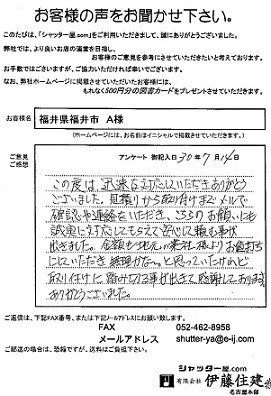 お客様の声をお聞かせ下さい。
このたびは、「シャッター屋.com」をご利用いただきまして、誠にありがとうございました。
弊社では、より良いお店の運営を目指し、
お客様のご意見を参考にさせていただきたいと考えております。
お手数ではございますが、ご協力いただければ幸いでございます。
なお、弊社ホームページに掲載させていただいたお客様には、
もれなく500円分の図書カードをプレゼントさせていただきます。
お客様名
福井県福井市 A様
(ホームページには、お名前はイニシャルで掲載させていただきます。)
ご意見
ご感想
アンケート 御記入日 30年 7月 14日
この度は、迅速な対応していただきありがとう
ございました。見積りから取り付けまでメールで
確認や連絡をいただき、こちらのお願いにも
誠実に対応してもらえて安心して頼む事が
出来ました。金額も地元の業社様よりお値打ち
にしていただき、無理かな…と思っていたけれど
取り付けに踏み切る事が出来て感謝しております。
ありがとうございました。
ご返信は、下記FAX番号、または下記メールアドレスにお願い致します。
FAX 052-462-8958
メールアドレス shutter-ya@e-ij.com
ご郵送の場合は、恐縮ですが、送料はご負担下さい。
シャッター屋.com
有限会社 伊藤住建
名古屋本舗